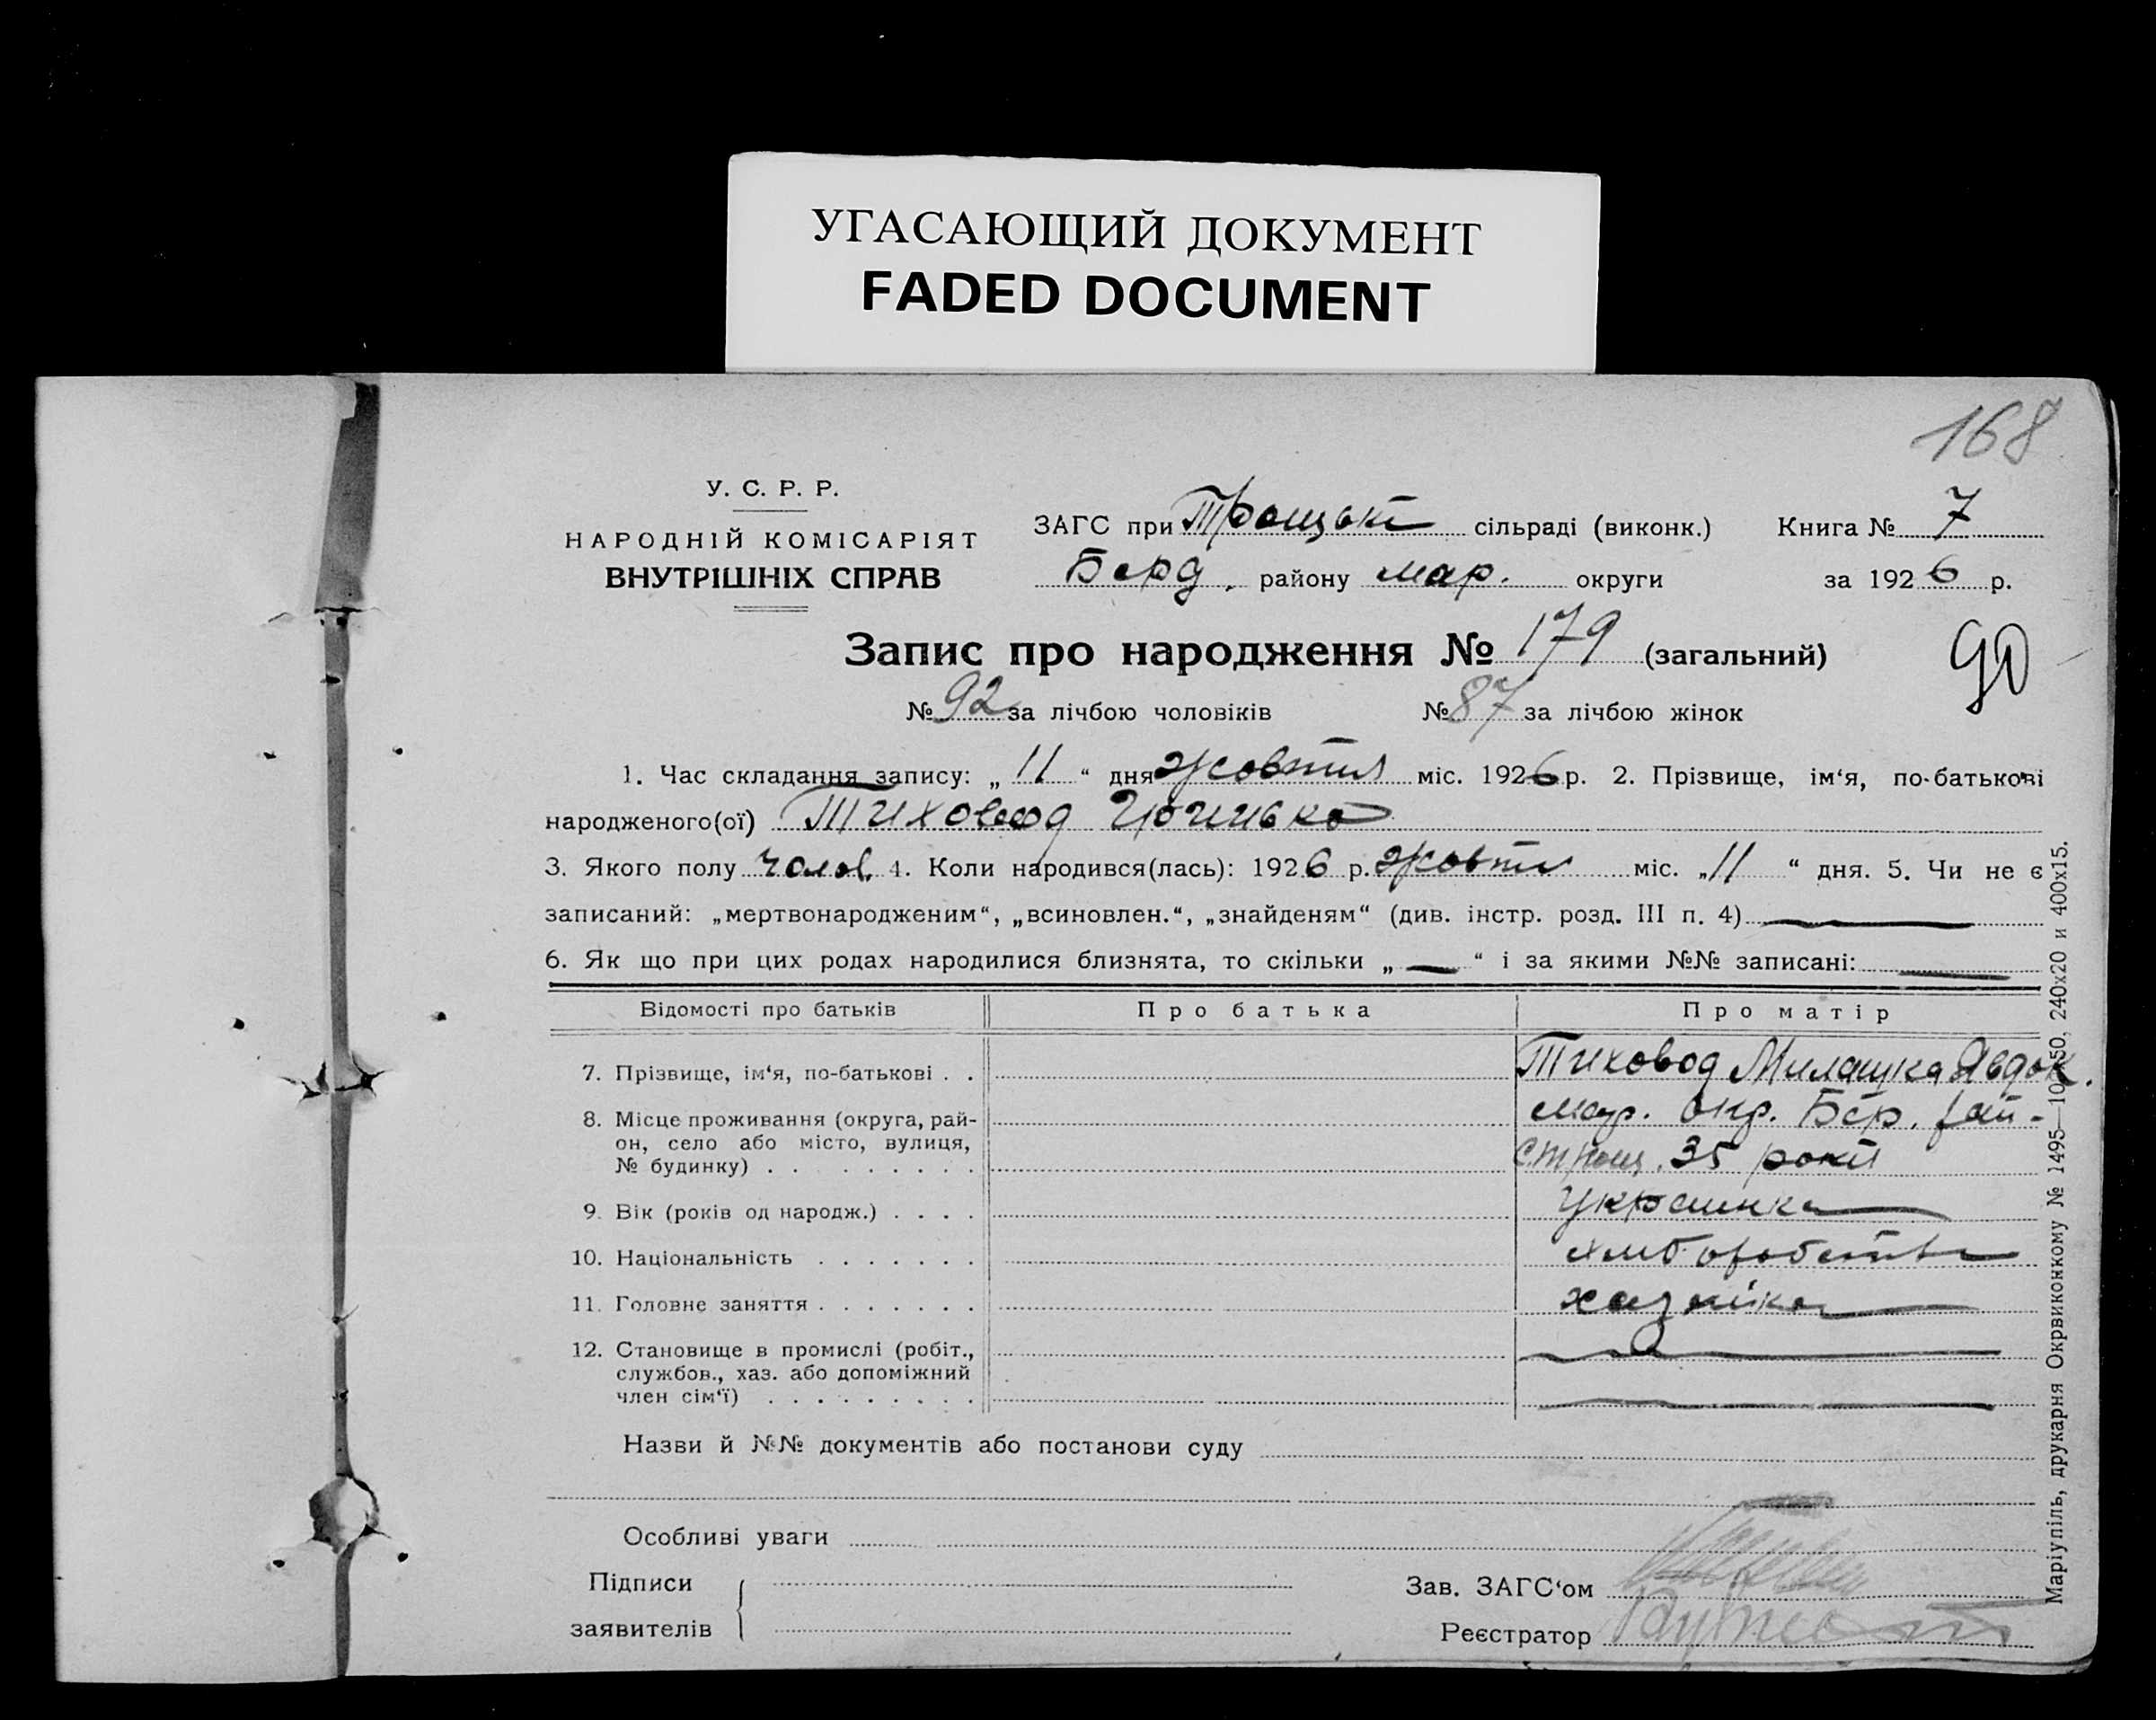 УГАСАЮЩИЙ ДОКУМЕНТ
FADED DOCUMENT
168
У. С. Р. Р.
НАРОДНІЙ КОМІСАРІЯТ
ВНУТРІШНІХ СПРАВ
ЗАГС при Троцькі сільраді (виконк.) Книга № 7
Берд. району мар. округи за 1926 р.
Запис про народження № 179 (загальний)
90
№ 92 за лічбою чоловіків № 87 за лічбою жінок
1. Час складання запису: „ 11 “ дня жовтня міс. 1926 р. 2. Прізвище, ім‘я, по-батькові
народженого(ої) Тиховод
3. Якого полу чолов. 4. Коли народився(лась): 1926 р. жовтн міс. „ 11 “ дня. 5. Чи не є
записаний: „мертвонародженим“, „всиновлен.“, „знайденям“ (див. інстр. розд. III п. 4)
6. Як що при цих родах народилися близнята, то скільки „ — “ і за якими №№ записані: —
Відомості про батьків Про батька Про матір
7. Прізвище, ім‘я, по-батькові . . Тиховод Милашка Явдок.
8. Місце проживання (округа, рай- мар. окр. Бер. рай-
он, село або місто, вулиця,
№ будинку) . . . . . . . . 35 рокі
9. Вік (років од народж.) . . . . Украинка
10. Національність . . . . . . . хліборобств
11. Головне заняття . . . . . . . хазяйка
12. Становище в промислі (робіт.,
службов., хаз. або допоміжний
член сім‘ї) . . . . . . . . .
Назви й №№ документів або постанови суду
Особливі уваги
Підписи
заявителів
Зав. ЗАГС‘ом
Реєстратор
Маріупіль, друкарня Окрвиконкому № 1495—10 50, 240х20 и 400х15.